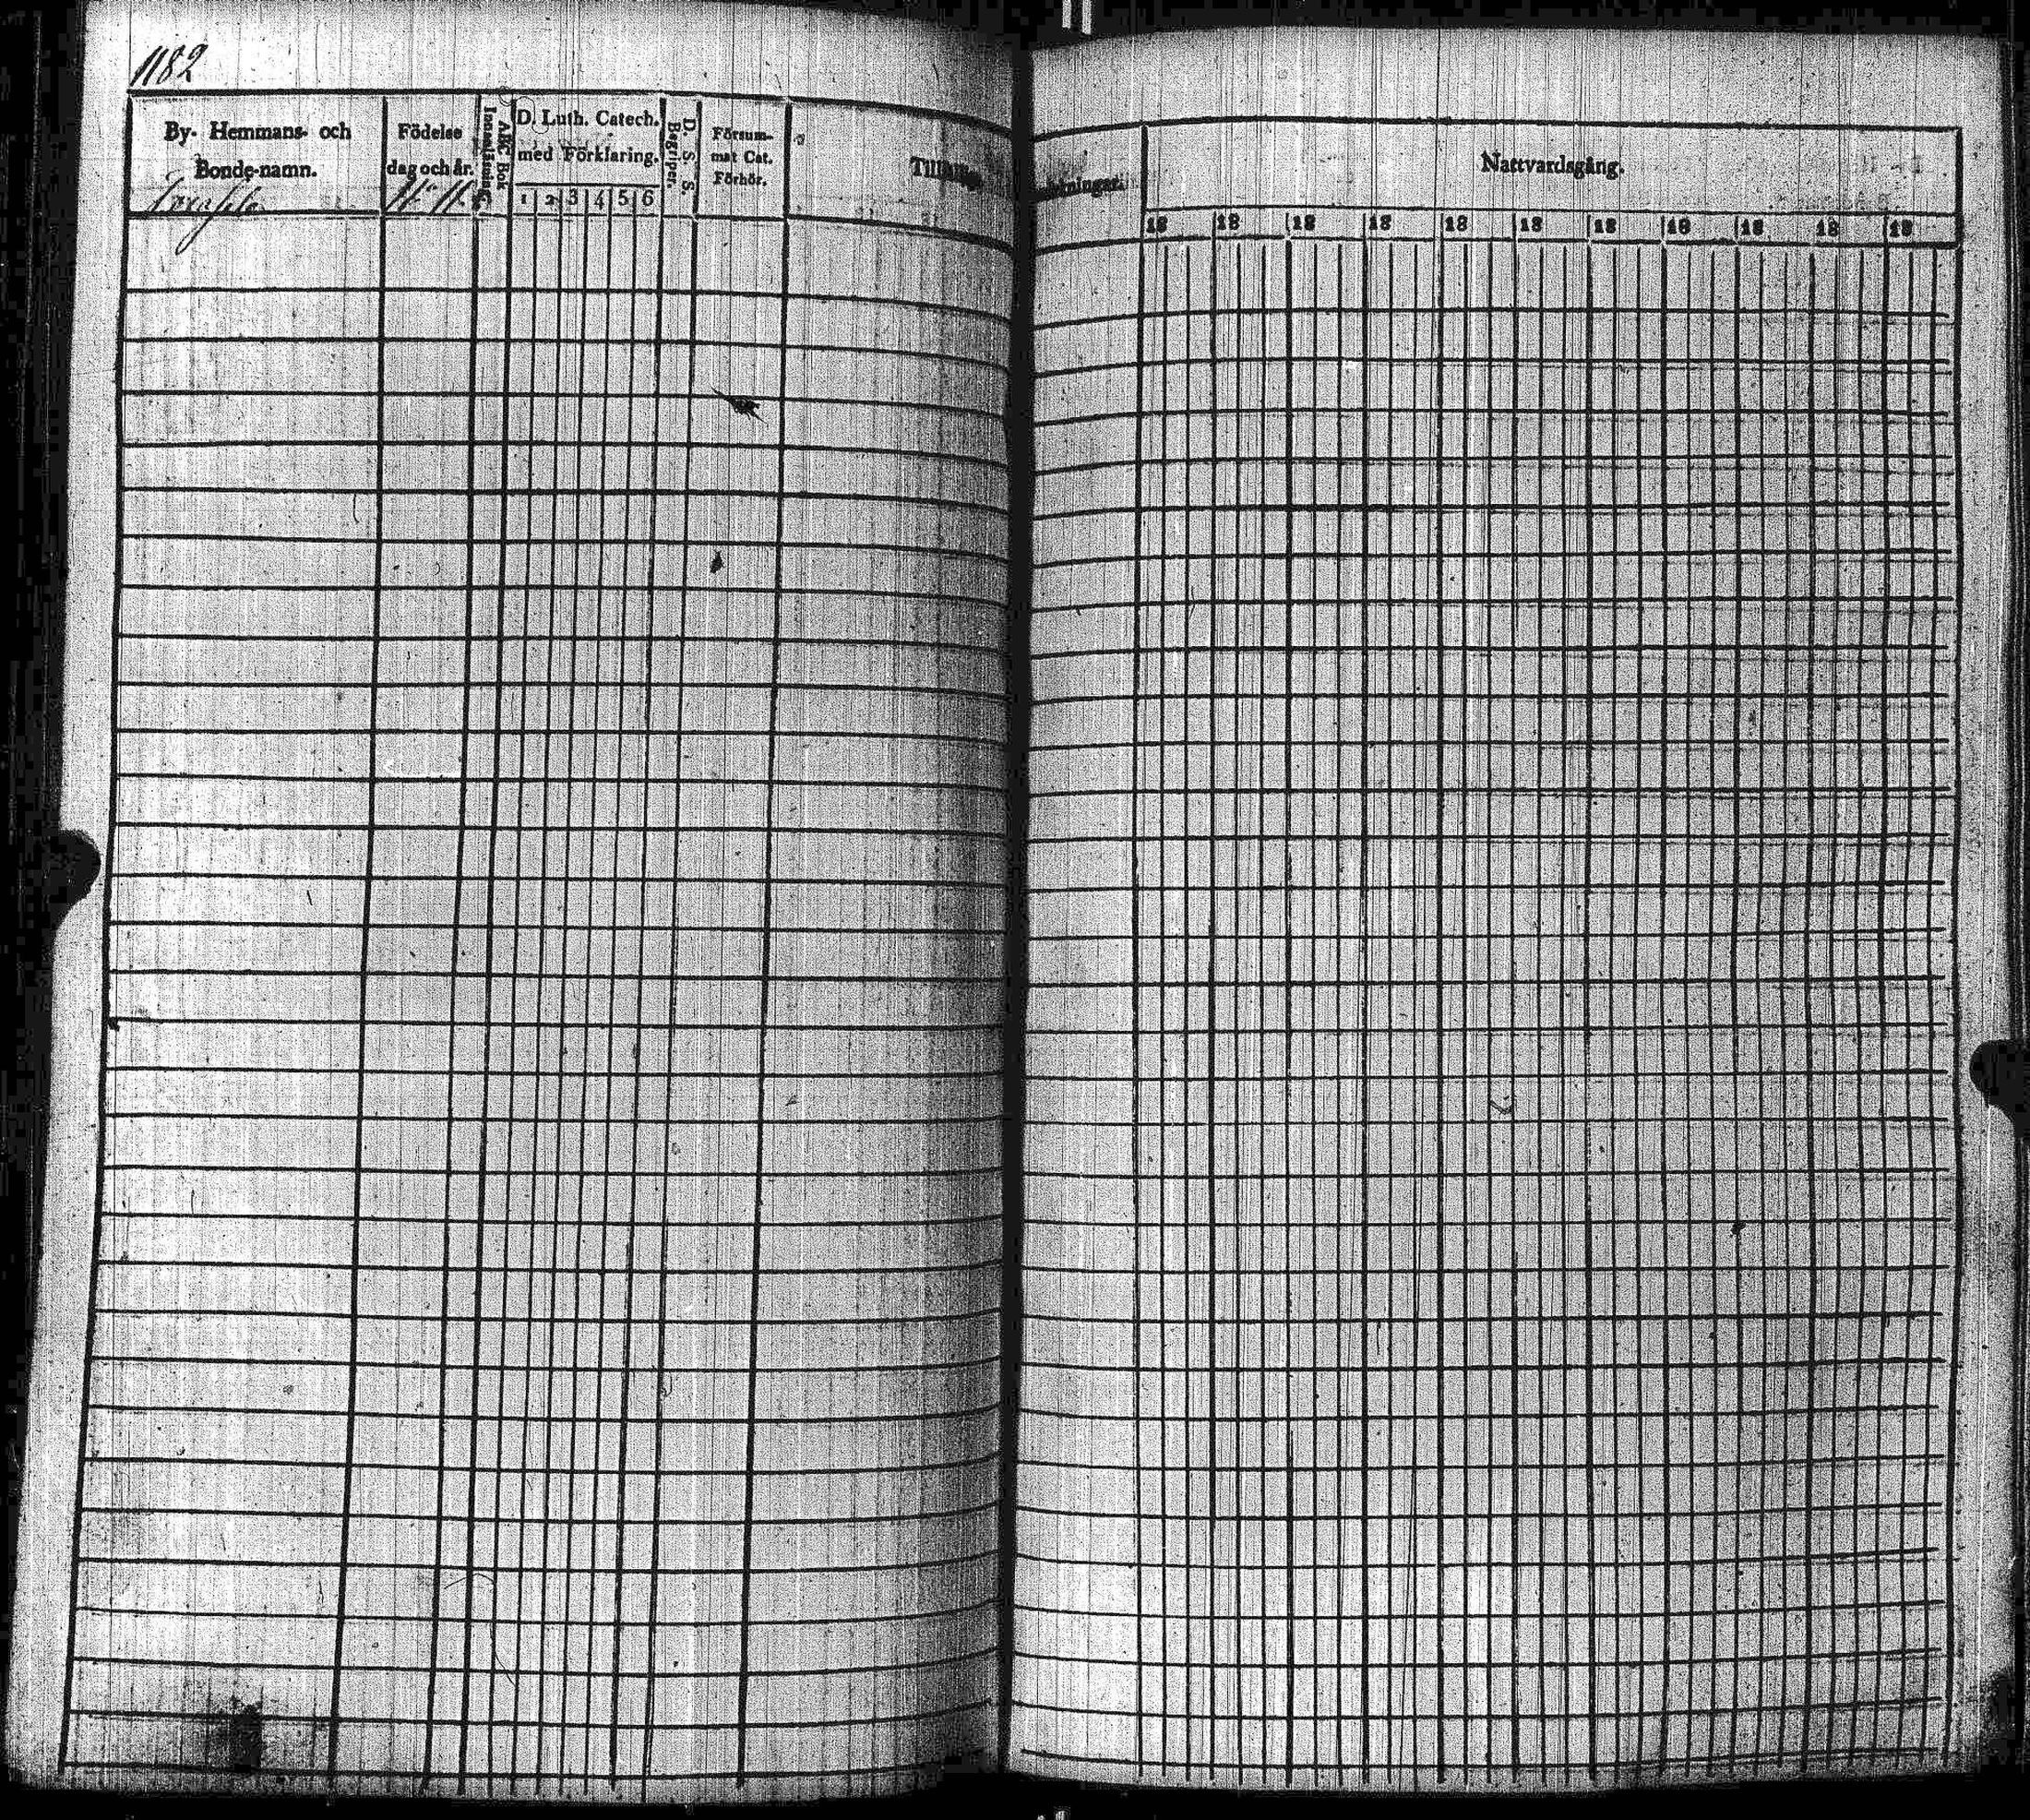 1182
By- Hemmans- och
Bonde-namn.
Födelse
dag och år.
ABC Bok
Innanläsning.
D. Luth. Catech.
med Förklaring.
1 2 3 4 5 6
D. S. S.
Begriper.
Försum-
mat Cat.
Förhör.
Nattvardsgång.
18 18 18 18 18 18 18 18 18 18 18